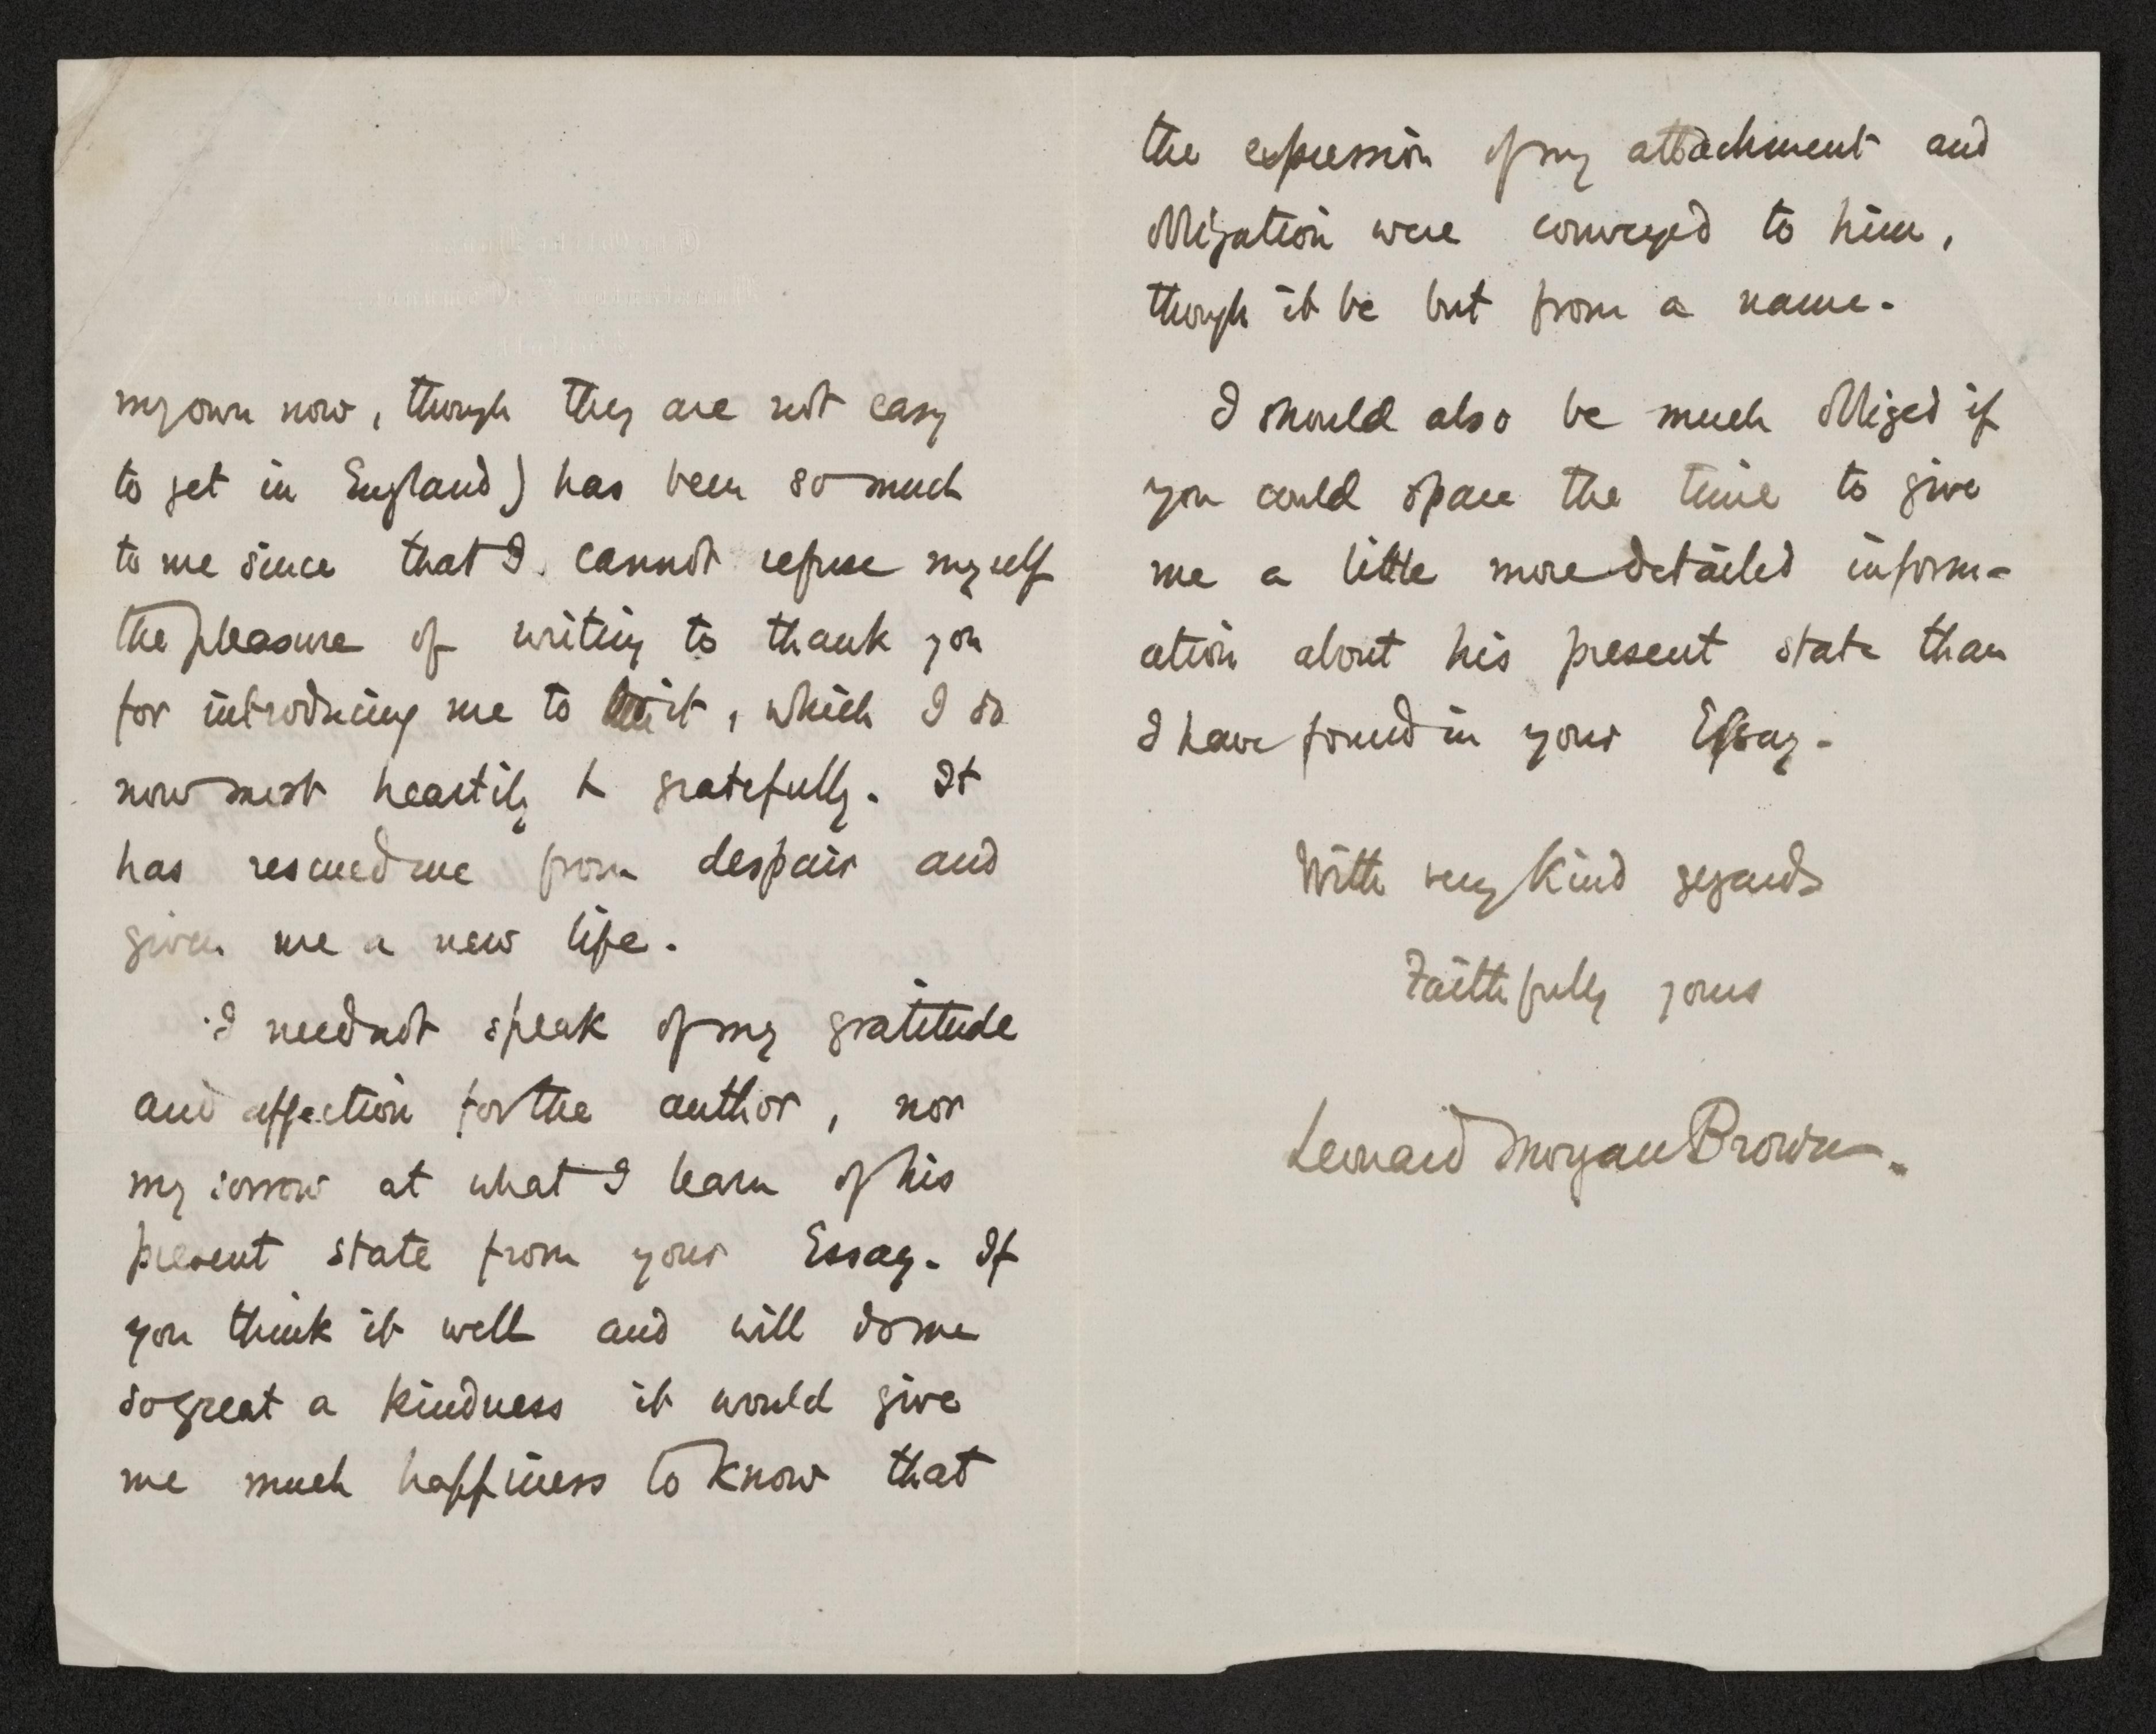 my own now, though they are not easy
to get in England) has been so much
to me since that I cannot refuse myself
the pleasure of writing to thank you
for introducing me to it, which I do
now most heartily & gratefully. It
has rescued me from despair and
given me a new life.
I need not speak of my gratitude
and affection for the author, nor
my sorrow at what I learn of his
present state from your Essay. If
you think it well and will do me
so great a kindness it would give
me much happiness to know that
the expression of my attachment and
obligation were conveyed to him,
though it be but from a name.
I should also be much obliged if
you could spare the time to give
me a little more detailed inform-
ation about his present state than
I have found in your Essay.
With very kind regards
Faithfully yours
Leonard Morgan Brown.